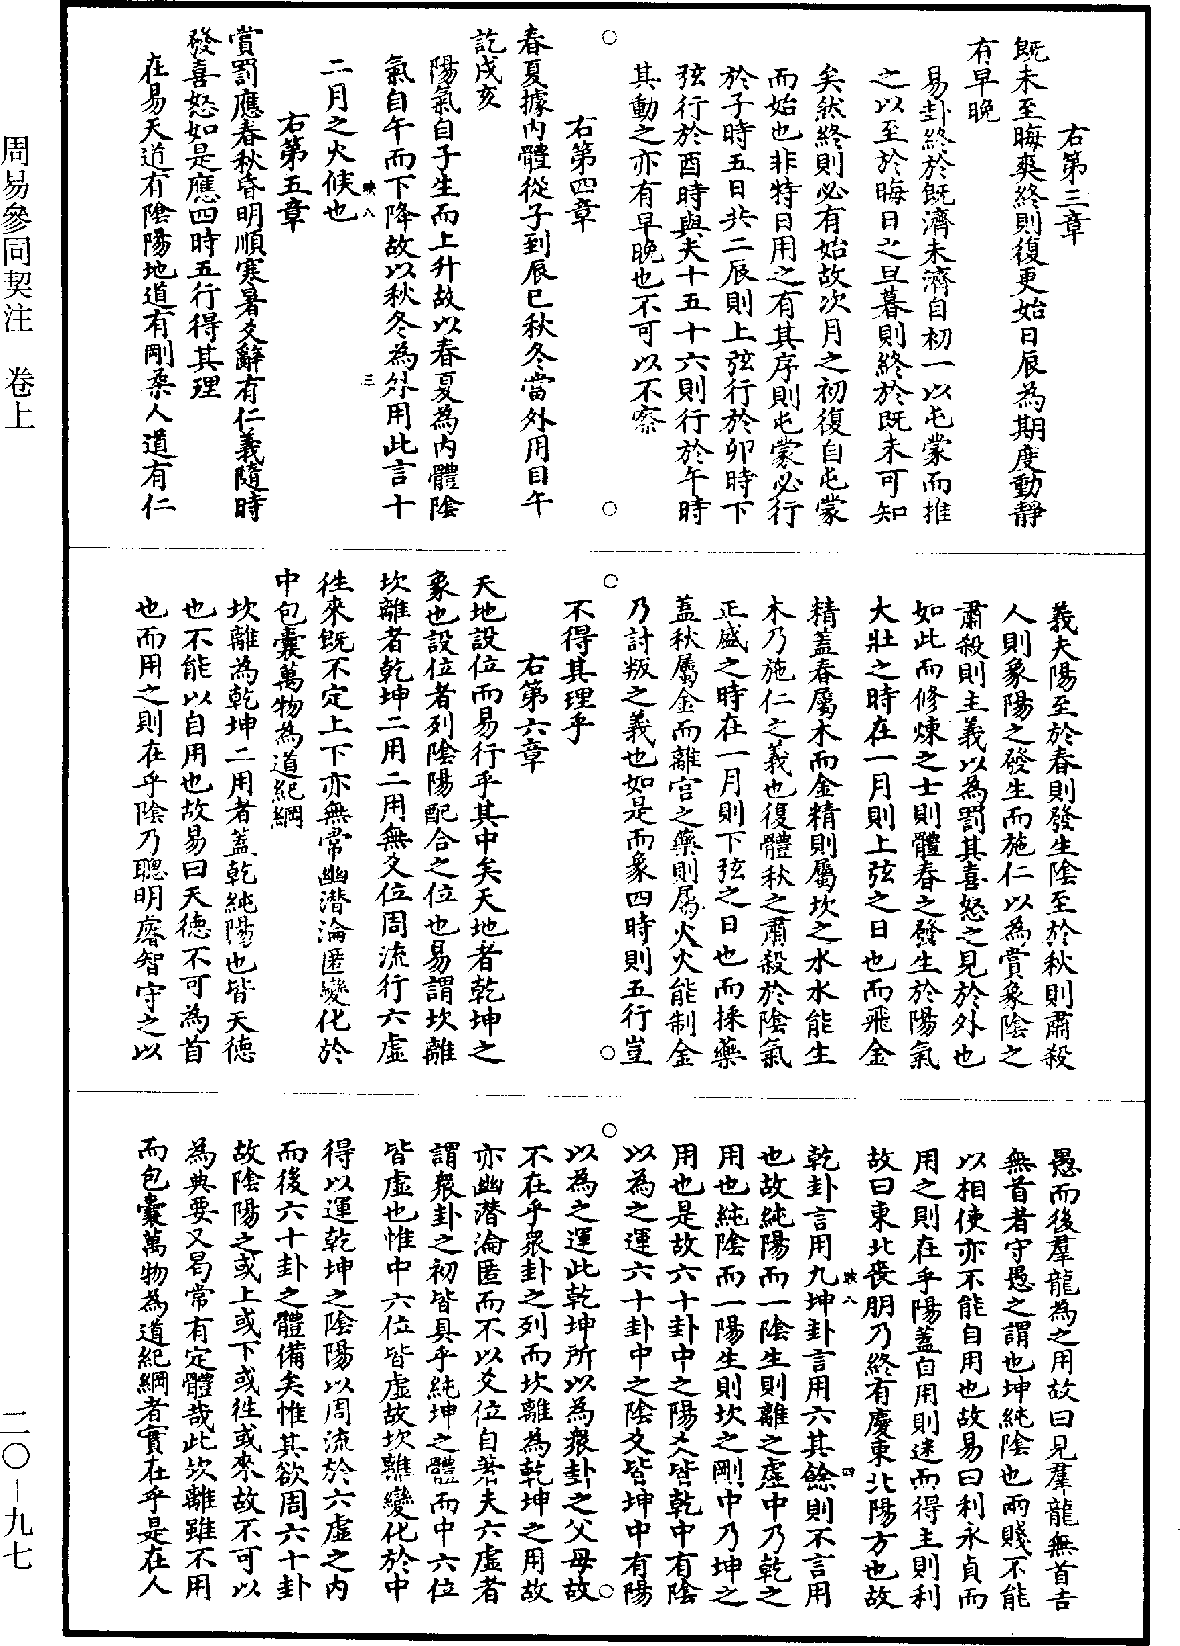 周易參同契注　卷上
二〇—九七
右第三章
既未至晦爽終則復更始日辰為期度動靜
有早晚
易卦終於既濟未濟自初一以屯蒙而推
之以至於晦日之旦暮則終於既未可知
矣然終則必有始故次月之初復自屯蒙
而始也非特日用之有其序則屯蒙必行
於子時五日共二辰則上弦行於卯時下
弦行於酉時與夫十五十六則行於午時
其動之亦有早晚也不可以不察
右第四章
春夏據內體從子到辰巳秋冬當外用自午
訖戌亥
陽氣自子生而上升故以春夏為內體陰
氣自午而下降故以秋冬為外用此言十
二月之火候也
映八
三
右第五章
賞罰應春秋昏明順寒暑爻辭有仁義隨時
發喜怒如是應四時五行得其理
在易天道有陰陽地道有剛柔人道有仁
義夫陽至於春則發生陰至於秋則肅殺
人則象陽之發生而施仁以為賞象陰之
肅殺則主義以為罰其喜怒之見於外也
如此而修煉之士則體春之發生於陽氣
大壯之時在一月則上弦之日也而飛金
精蓋春屬木而金精則屬坎之水水能生
木乃施仁之義也復體秋之肅殺於陰氣
正盛之時在一月則下弦之日也而採藥
蓋秋屬金而離宮之藥則屬火火能制金
乃討叛之義也如是而象四時則五行豈
不得其理乎
右第六章
天地設位而易行乎其中矣天地者乾坤之
象也設位者列陰陽配合之位也易謂坎離
坎離者乾坤二用二用無爻位周流行六虛
往來既不定上下亦無常幽潛淪匿變化於
中包囊萬物為道紀綱
坎離為乾坤二用者蓋乾純陽也皆天德
也不能以自用也故易曰天德不可為首
也而用之則在乎陰乃聰明睿智守之以
愚而後羣龍為之用故曰見羣龍無首吉
無首者守愚之謂也坤純陰也兩賤不能
以相使亦不能自用也故易曰利永貞而
用之則在乎陽蓋自用則迷而得主則利
故曰東北喪朋乃終有慶東北陽方也故
乾卦言用九坤卦言用六其餘則不言用
映八
四
也故純陽而一陰生則離之虛中乃乾之
用也純陰而一陽生則坎之剛中乃坤之
用也是故六十卦中之陽爻皆乾中有陰
以為之運六十卦中之陰爻皆坤中有陽
以為之運此乾坤所以為衆卦之父母故
不在乎衆卦之列而坎離為乾坤之用故
亦幽潛淪匿而不以爻位自著夫六虛者
謂衆卦之初皆具乎純坤之體而中六位
皆虛也惟中六位皆虛故坎離變化於中
得以運乾坤之陰陽以周流於六虛之內
而後六十卦之體備矣惟其欲周六十卦
故陰陽之或上或下或往或來故不可以
為典要又曷常有定體哉此坎離雖不用
而包囊萬物為道紀綱者實在乎是在人